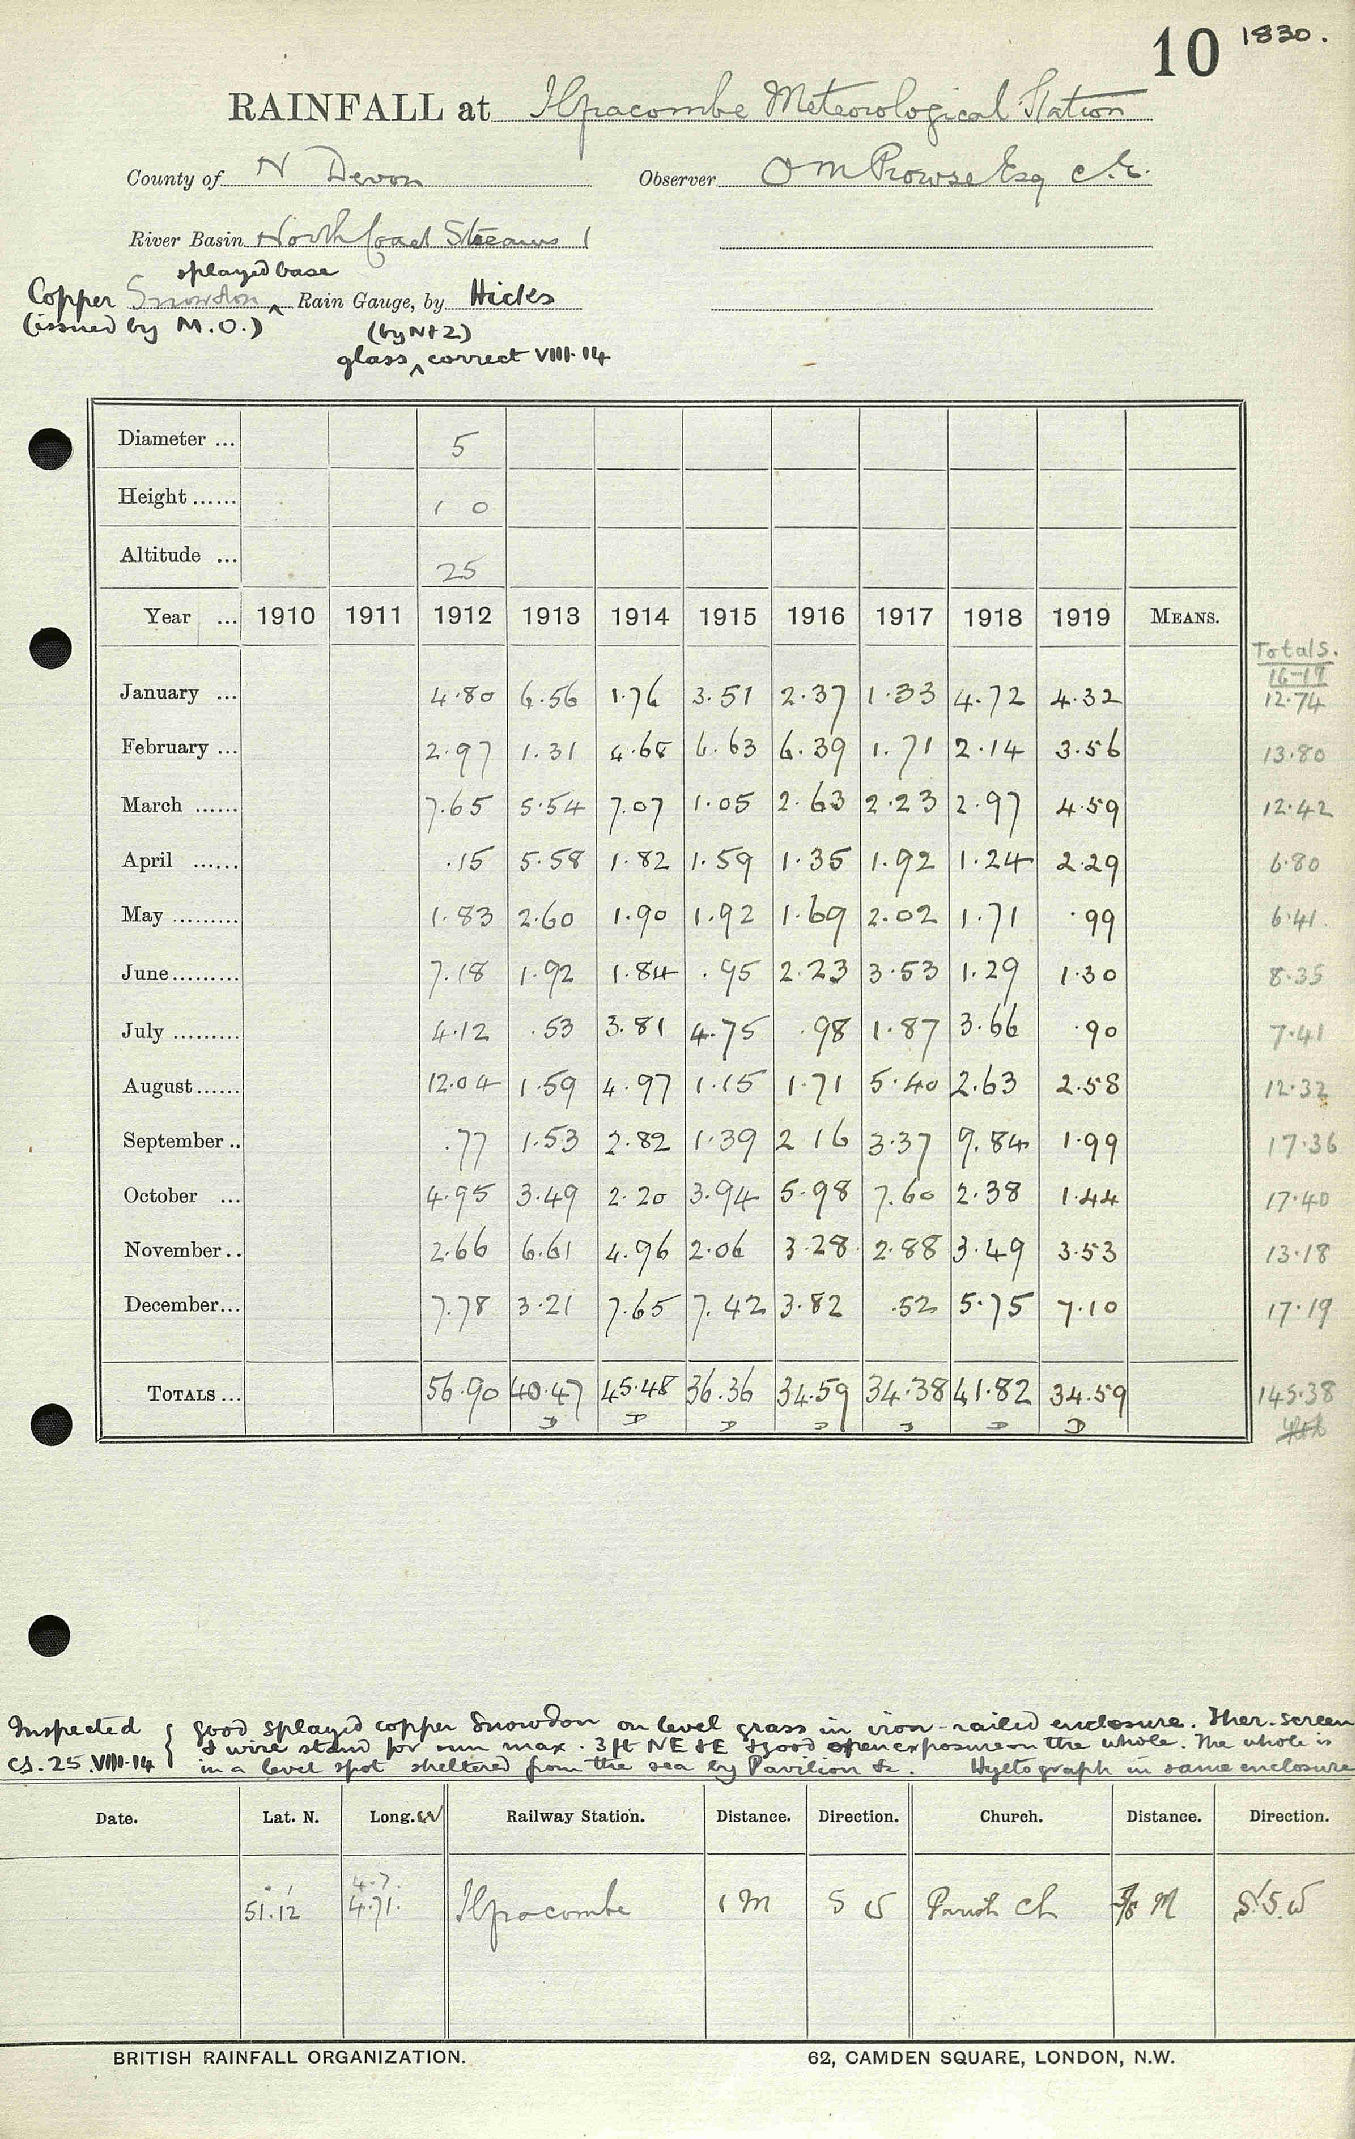 10 1830.
RAINFALL at Ilfracombe Meteorological Station
County of N Devon Observer O M Prowse Esq C.E.
River Basin North Coast Streams 1
splayed base
Copper Snowdon ^ Rain Gauge, by Hicks
(issued by M.O.) (by N+Z)
glass ^ correct VIII.14
Diameter ... 5
Height ...... 1 0
Altitude ... 25
Year ... 1910 1911 1912 1913 1914 1915 1916 1917 1918 1919 MEANS.
Totals.
16-19
January ... 4.80 6.56 1.76 3.51 2.37 1.33 4.72 4.32 12.74
February ... 2.97 1.31 4.68 6.63 6.39 1.71 2.14 3.56 13.80
March ...... 7.65 5.54 7.07 1.05 2.63 2.23 2.97 4.59 12.42
April ...... .15 5.58 1.82 1.59 1.35 1.92 1.24 2.29 6.80
May ......... 1.83 2.60 1.90 1.92 1.69 2.02 1.71 .99 6.41
June......... 7.18 1.92 1.84 .95 2.23 3.53 1.29 1.30 8.35
July ......... 4.12 .53 3.81 4.75 .98 1.87 3.66 .90 7.41
August...... 12.04 1.59 4.97 1.15 1.71 5.40 2.63 2.58 12.32
September .. .77 1.53 2.82 1.39 2 16 3.37 9.84 1.99 17.36
October ... 4.95 3.49 2.20 3.94 5.98 7.60 2.38 1.44 17.40
November .. 2.66 6.61 4.96 2.06 3.28 2.88 3.49 3.53 13.18
December... 7.78 3.21 7.65 7.42 3.82 .52 5.75 7.10 17.19
TOTALS ... 56.90 40.47 45.48 36.36 34.59 34.38 41.82 34.59 145.38
Inspected { Good splayed copper Snowdon on level grass in iron-railed enclosure. Ther. screen
& wire stand for sun max. 3 ft NE & E & good open exposure on the whole. The whole is
CS. 25.VIII.14 in a level spot sheltered from the sea by Pavilion &c. Hyetograph in same enclosure
Date. Lat. N. Long. W Railway Station. Distance. Direction. Church. Distance. Direction.
4.7.
51.12 4.71. Ilfracombe 1 m S W Parish Ch 3/8 M S.S.W
BRITISH RAINFALL ORGANIZATION. 62, CAMDEN SQUARE, LONDON, N.W.